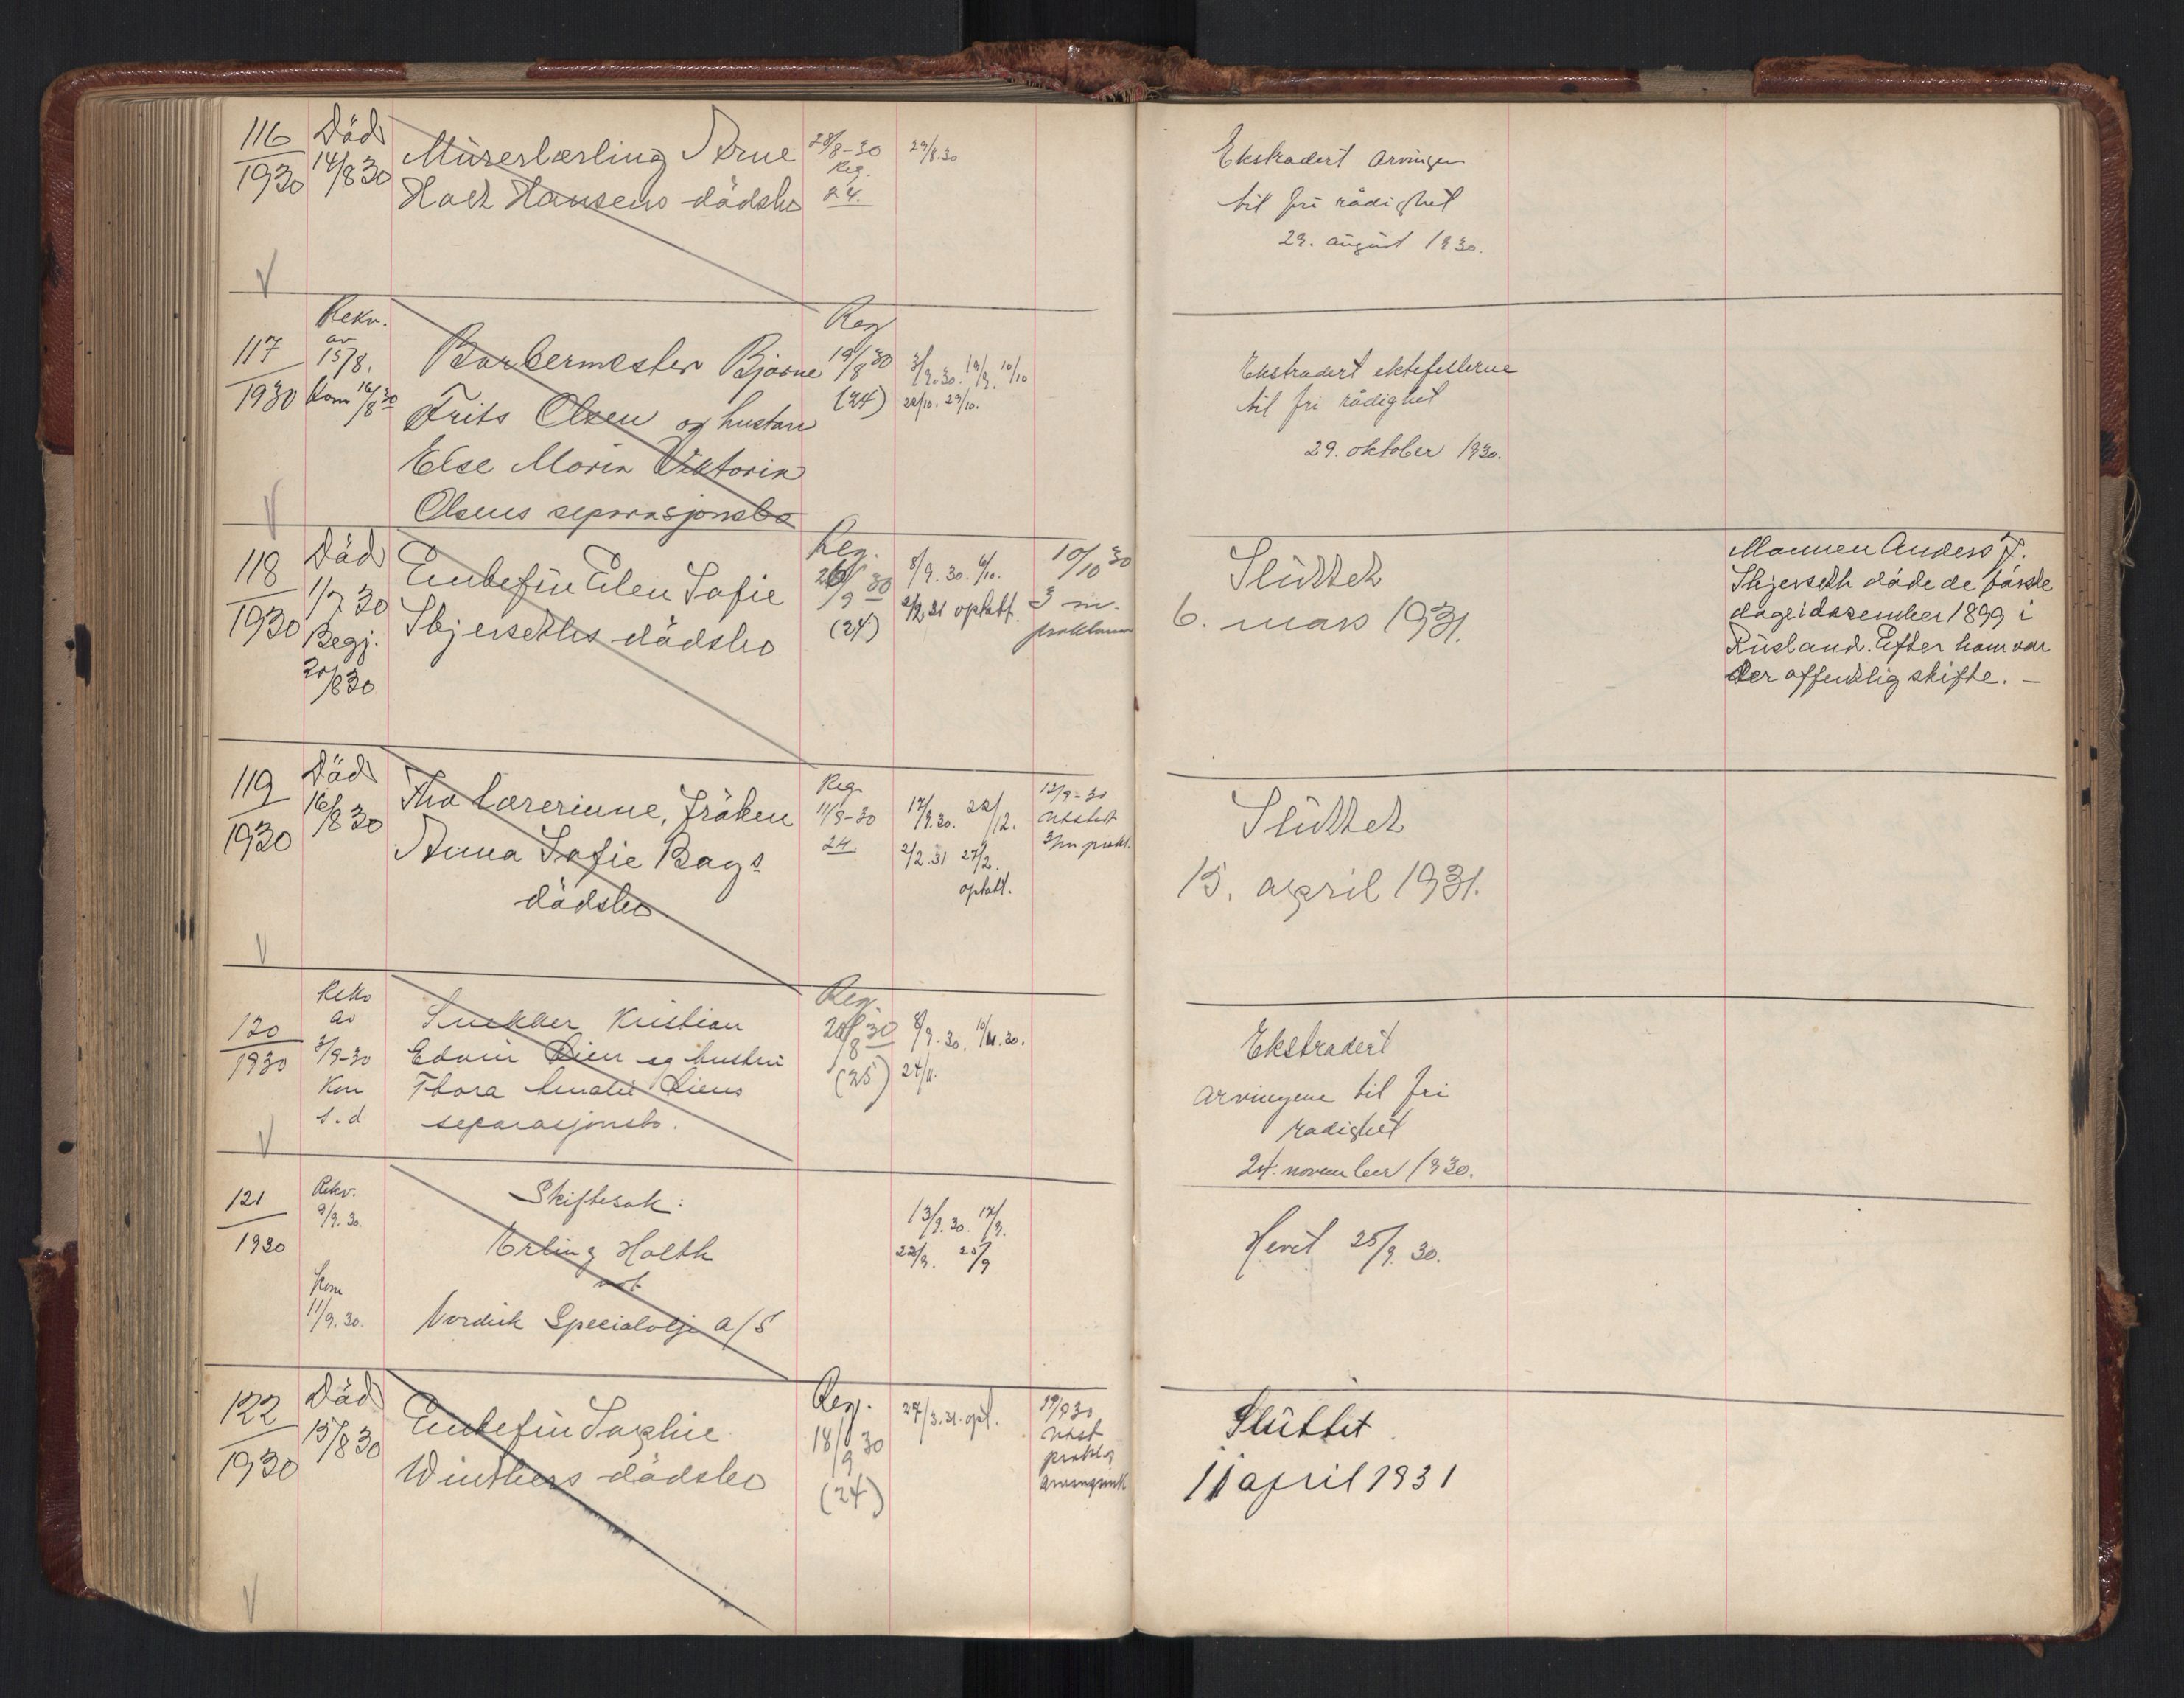 116
1930
Död
14/8 30
Murerlærling Arne
Holt Hansens dödsbo
28/8-30
Reg.
24.
29/8.30
Ekstradert arvingen
til fri rådighet
29. august 1930.
117
1930
Rekv.
av
15/8.
Kom 16/8 30
Barbermester Bjarne
Frits Olsen og hustru
Else Marie Viktoria
Olsens separasjonsbo
Reg
19/8 30
(24)
3/9.30. 19/9. 10/10
22/10. 29/10.
Ekstradert ektefellerne
til fri rådighet
29. oktober 1930.
118
1930
Död
11/7 30
Begj.
20/8 30
Enkefru Elen Sofie
Skjerseths dödsbo
Reg.
26/9 30
(24)
8/9. 30. 6/10.
2/2 31 optatt.
10/10 30
3 m.
proklama
Sluttet
6. mars 1931.
Mannen Anders F.
Skjerseth döde de förste
dage i desember 1899 i
Rusland. Efter ham var
der offentlig skifte. —
119
1930
Död
16/8 30
Fhv lærerinne, fröken
Anna Sofie Bags
dödsbo
Reg.
11/9-30
24.
17/9.30. 22/12.
2/2.31 27/2.
optatt.
12/9-30
utstedt
3/m prokl.
Sluttet
15. april 1931.
120
1930
Rekv
av
3/9-30
Kom
s.d
Snekker Kristian
Edvin Lien og hustru
Thora Amalie Liens
separasjonsbo.
Reg.
28/8 30
(25)
8/9.30. 10/11.30.
24/11.
Ekstradert
arvingene til fri
radighet
24. november 1930.
121
1930
Rekv.
9/9. 30.
Kom
11/9.30.
Skiftesak:
Erling Holth
mot
Nordisk Specialolje A/S
13/9.30. 17/9.
22/9. 25/9
Hevet 25/9 30.
122
1930
Död
15/8 30
Enkefru Sophie
Winthers dödsbo
Reg.
18/9 30
(24)
27/3.31. opt.
19/9 30
utst
prokl og
Sluttet
11 april 1931